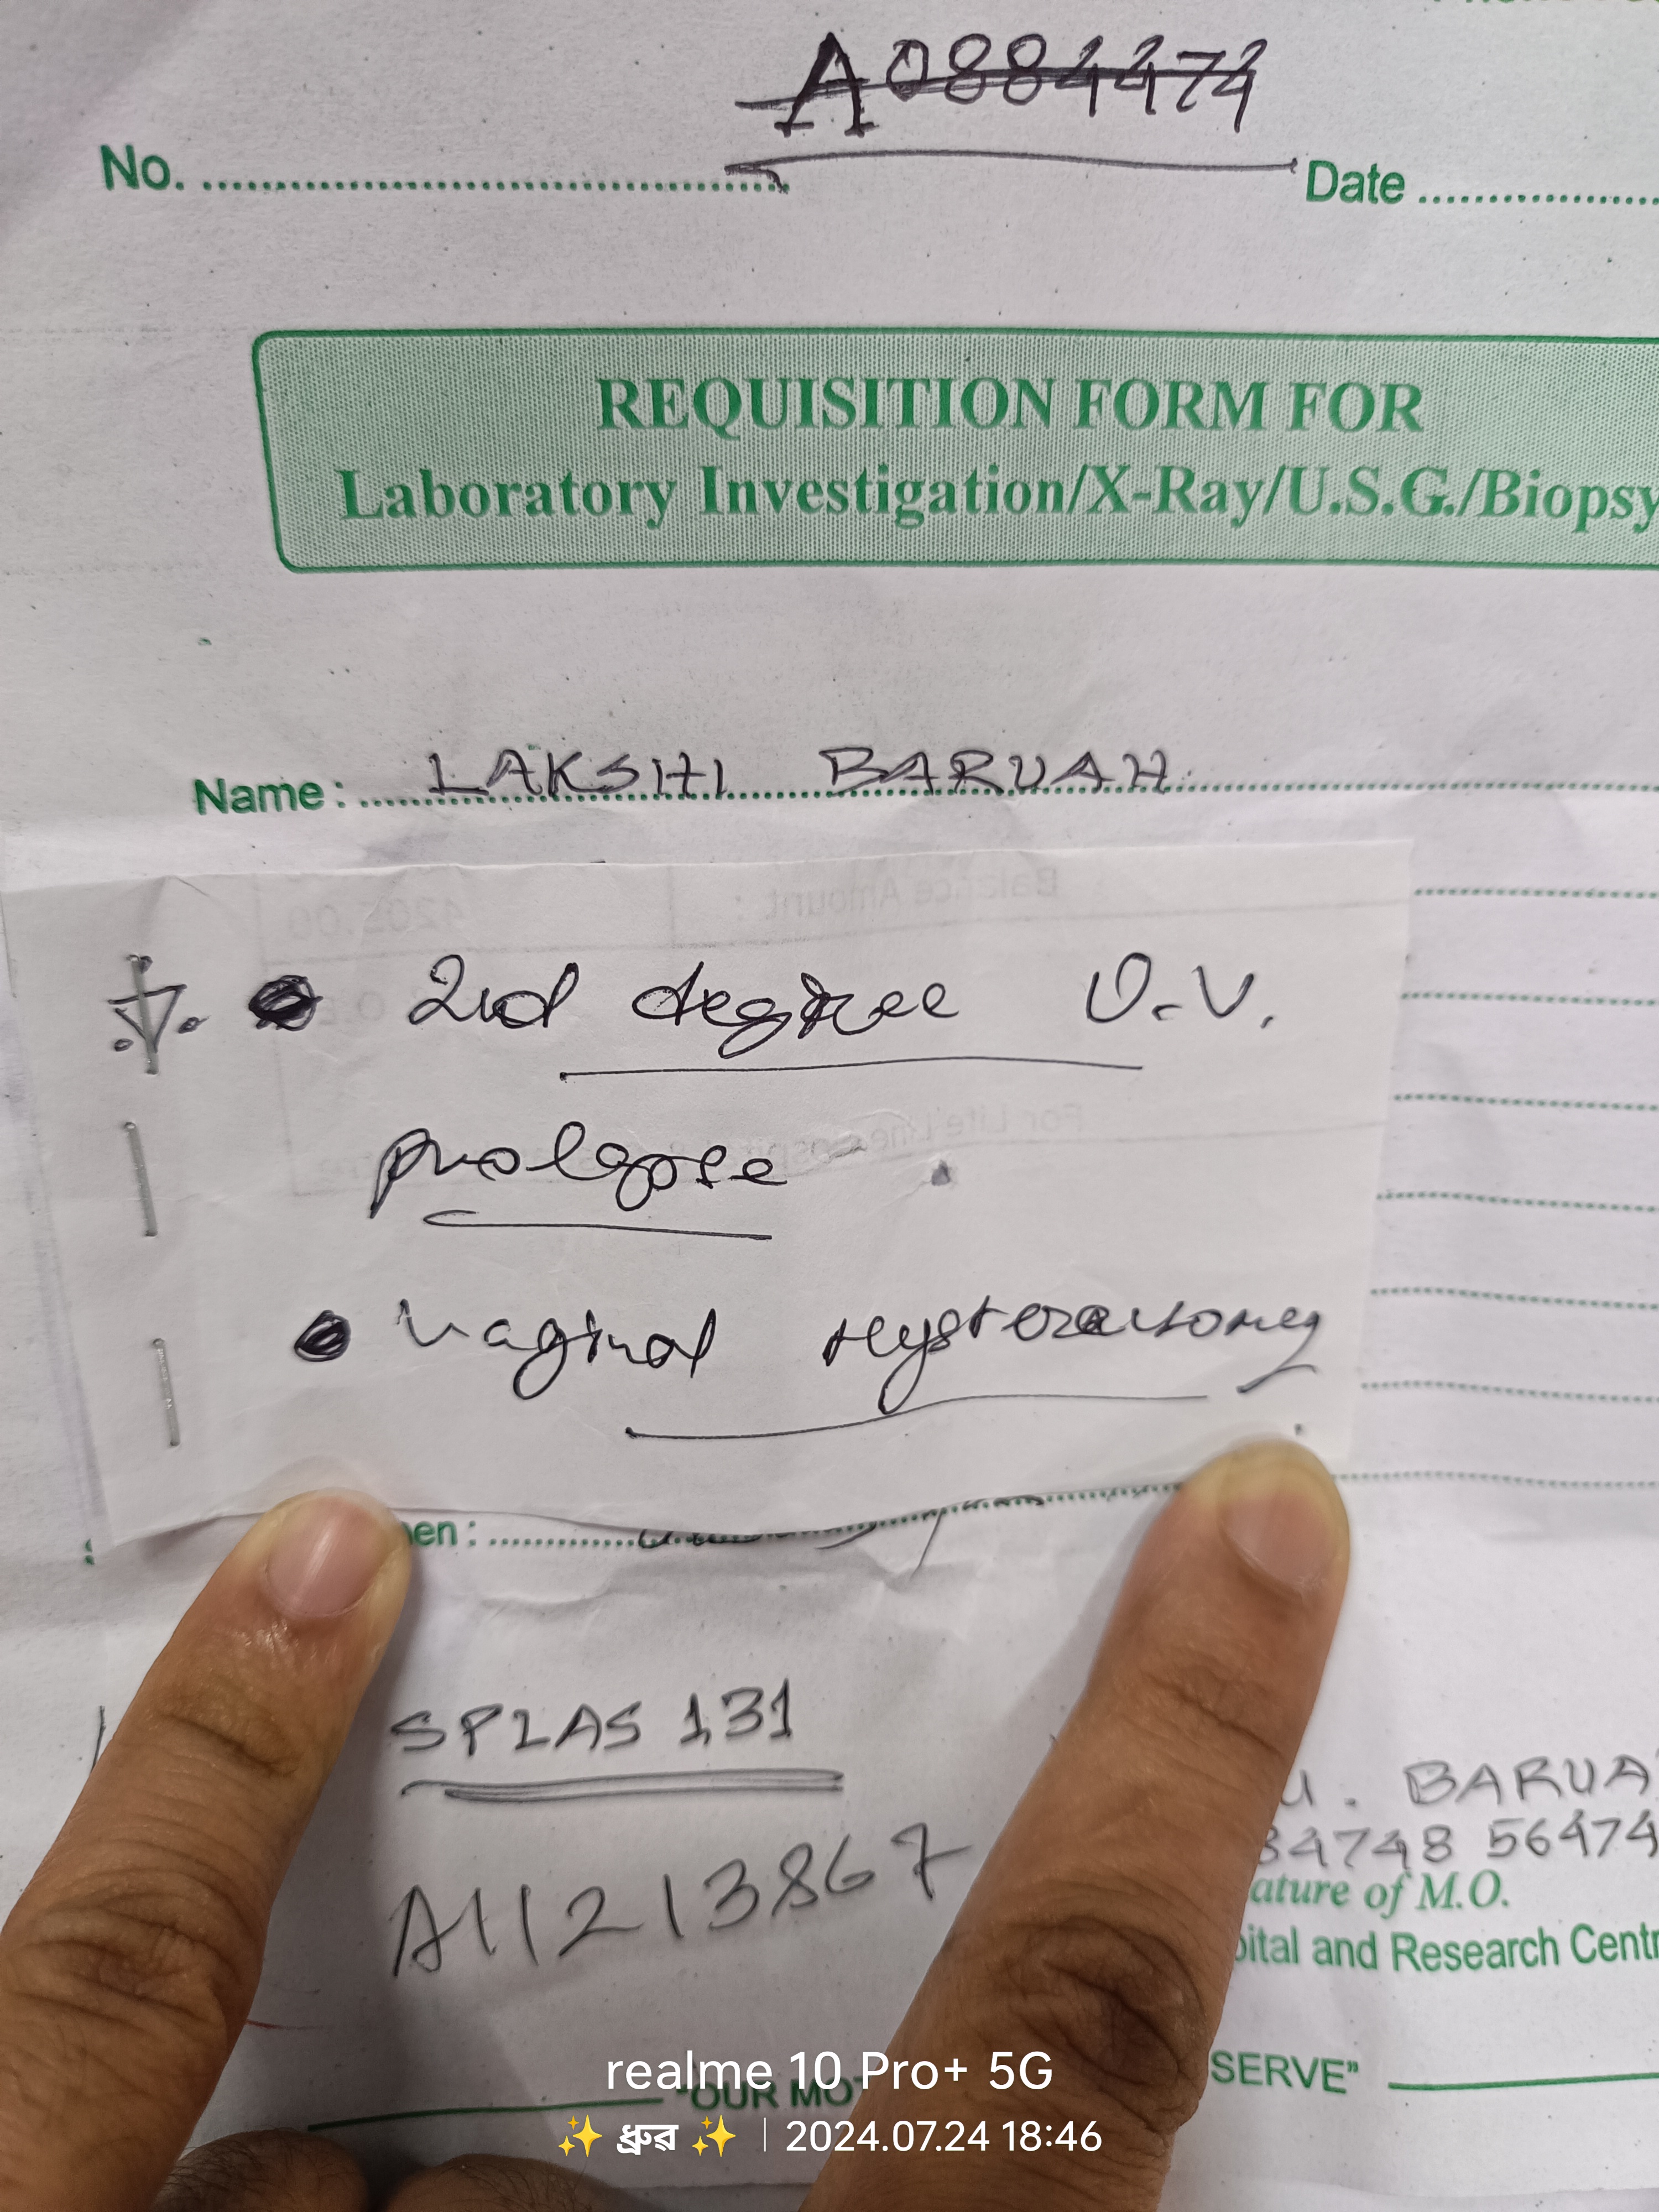 A0884474
No. ........ Date ........
REQUISITION FORM FOR
Laboratory Investigation/X-Ray/U.S.G./Biopsy
Name : LAKSHI BARUAH
2nd degree U.V.
prolapse
vaginal Hysterectomy
en : ........
SPLAS 131
U. BARUA
A11213867
34748 56474
ature of M.O.
pital and Research Centr
"OUR MO SERVE"
realme 10 Pro+ 5G
✨ ধ্ৰুৱ ✨ | 2024.07.24 18:46